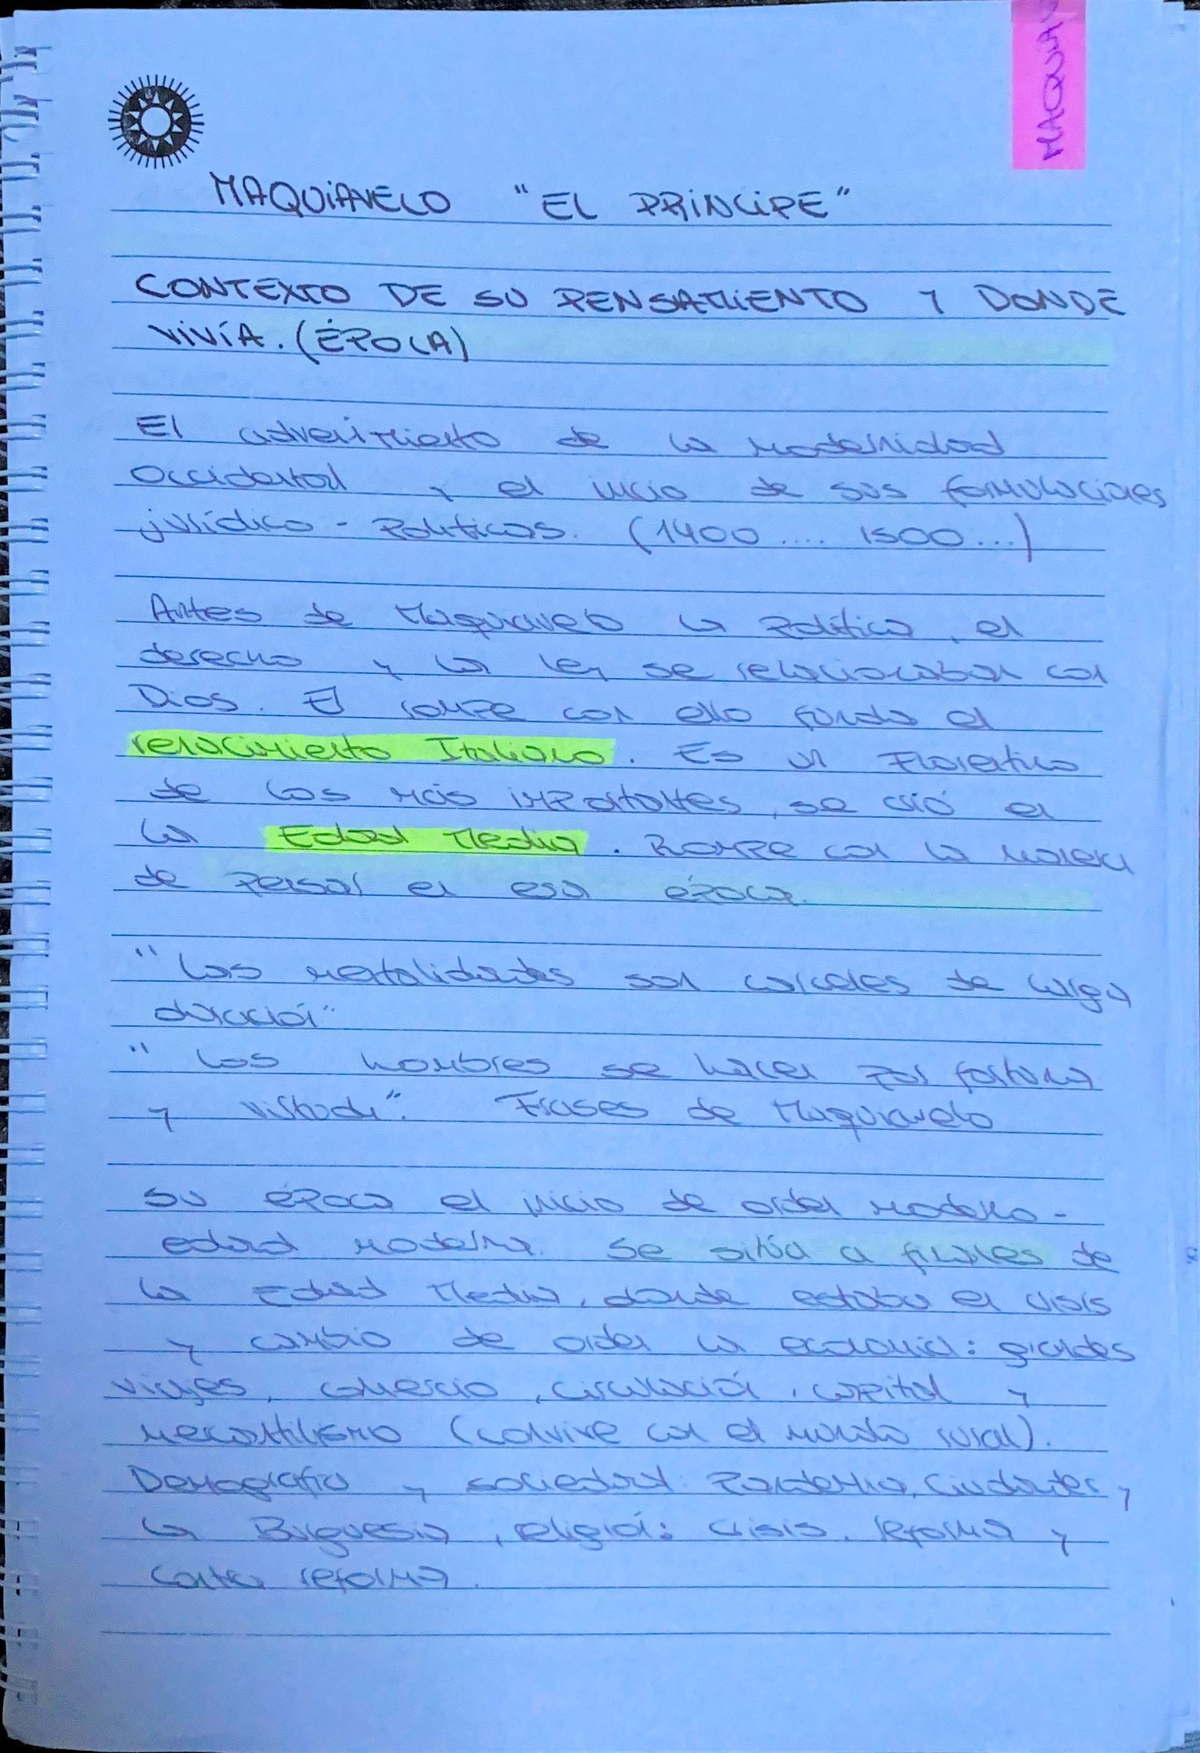 MAQUIAV
MAQUIAVELO "EL PRINCIPE"
CONTEXTO DE SU PENSAMIENTO Y DONDE
VIVÍA. (ÉPOCA)
El advenimiento de la modernidad
Occidental y el inicio de sus formulaciones
jurídico - Politicas. (1400 .... 1500...)
Antes de Maquiavelo la Política, el
derecho y la ley se relacionaban con
Dios. El rompe con ello funda el
renacimiento Italiano. Es un Florentino
de los más importantes, se crió en
la Edad Media. Rompe con la manera
de pensar en esa época.
"Las mentalidades son carceles de larga
duración"
"Los hombres se hacen por fortuna
y virtud". Frases de Maquiavelo
Su época el inicio de orden moderno -
edad moderna. Se sitúa a finales de
la Edad Media, donde estaba en crisis
y cambio de orden la economia: grandes
viajes, comercio, circulación, capital y
mercantilismo (convive con el mundo rural).
Demografia y sociedad. Pandemia, Ciudades y
la Burguesia, religión: crisis, reforma y
contra reforma.